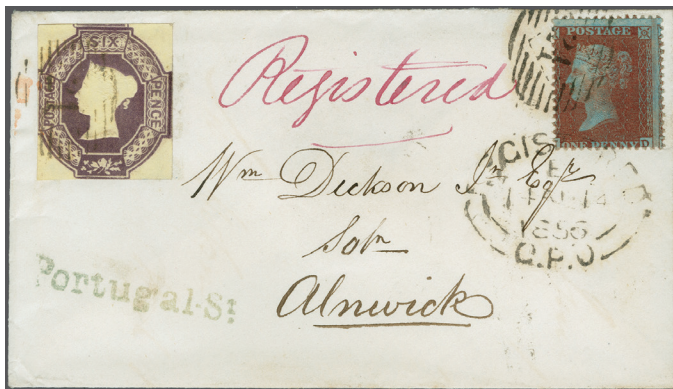 POSTAGE
SIX
PENCE
POSTAGE
ONE PENNY
Registered
Wm Dickson Jr. Esqr
Solr
Alnwick
Portugal-St
1856
G.P.O